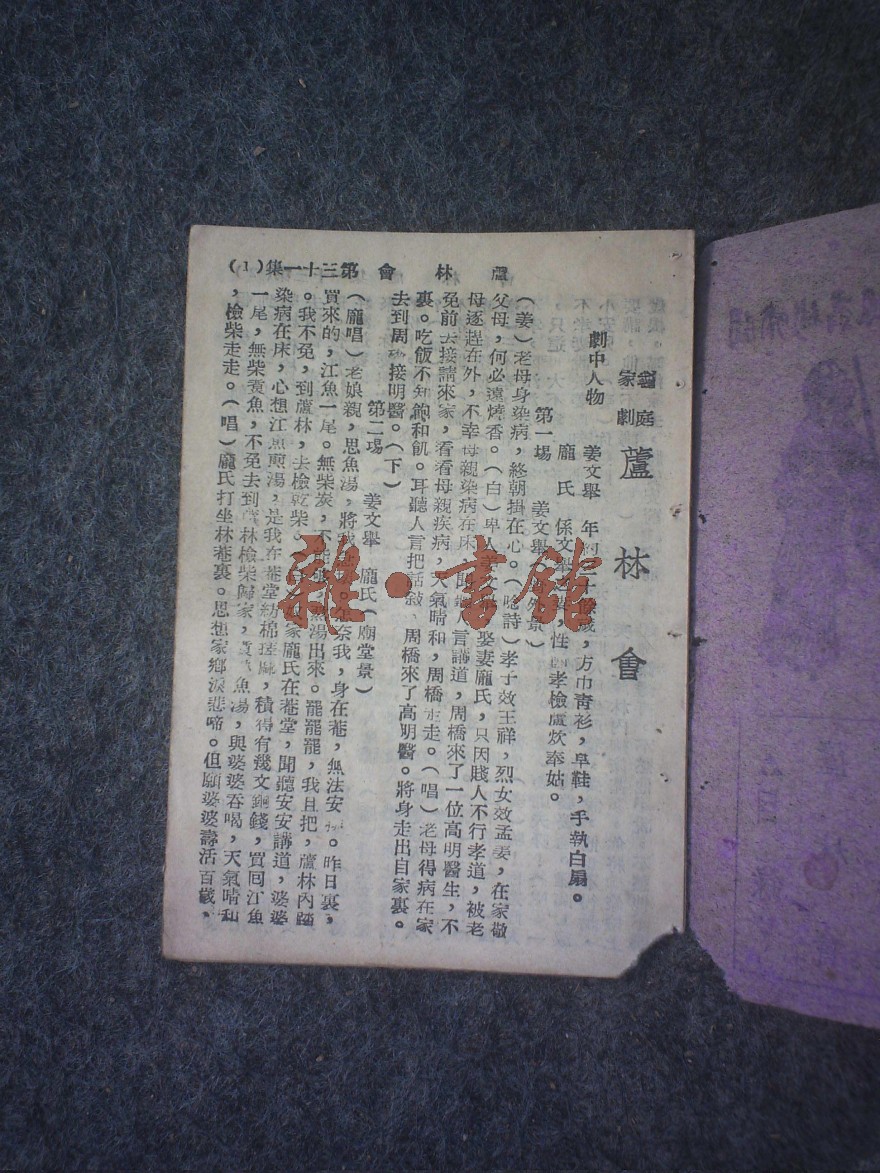 蘆林會 第三十一集 (1)
家庭
家劇
蘆林會
劇中人物 姜文舉 年 歲，方巾青衫，皁鞋，手執白扇。
龐氏 係文舉 妻，性 孝檢蘆炊奉姑。
第一場 姜文舉（外景）
（姜）老母身染病，終朝掛在心。（唸詩）孝子效王祥，烈女效孟姜，在家敬
父母，何必遠燒香。（白）卑人 娶妻龐氏，只因賤人不行孝道，被老
母逐趕在外，不幸母親染病在床，聞聽人言講道，周橋來了一位高明醫生，不
免前去接請來家，看看母親疾病，天氣晴和，周橋走走。（唱）老母得病在家
裏。吃飯不知飽和飢。耳聽人言把話敍，周橋來了高明醫。將身走出自家裏。
去到周 接明醫。（下）
第二場 姜文舉 龐氏（廟堂景）
（龐唱）老娘親，思魚湯，將我 奈我，身在菴，無法安 。昨日裏，
買來的，江魚一尾。無柴炭，不能 湯出來。罷罷罷，我且把，蘆林內踏
。我不免，到蘆林，去檢乾柴。 家龐氏在菴堂，聞聽安安講道，婆婆
染病在床，心想江魚煎湯，是我在菴堂紡棉 麻，積得有幾文銅錢，買回江魚
一尾，無柴煑魚，不免去到蘆林檢柴歸家， 魚湯，與婆婆吞喝，天氣晴和
，檢柴走走。（唱）龐氏打坐林菴裏。思想家鄉淚悲啼。但願婆婆壽活百歲，
雜·書館